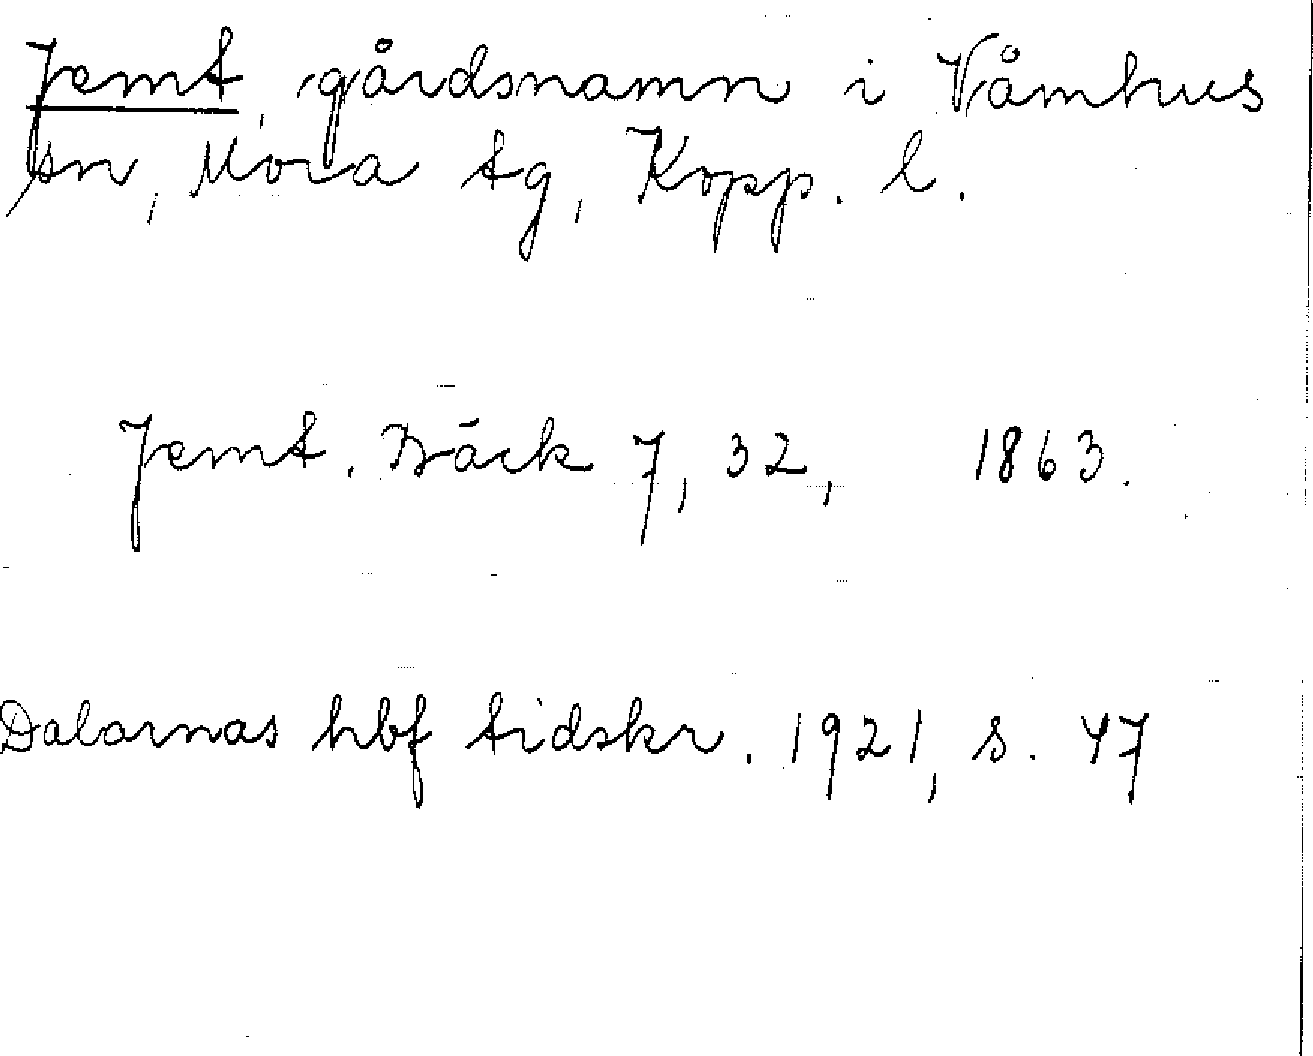 Jemt, gårdsnamn i Våmhus
sn, Mora tg, Kopp. l.
Jemt. Bäck 7, 32, 1863.
Dalarnas hbf tidskr. 1921, s. 47